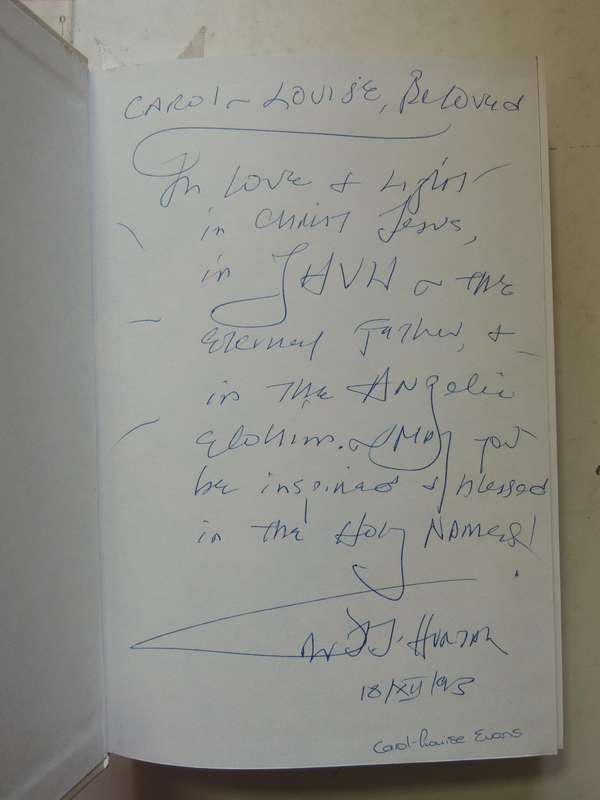 CAROL ~ LOUISE, Beloved
In Love & Light
in Christ Jesus,
in JHVH ~ the
eternal Father, &
in the Angelic
Elohim. ~ May you
be inspired & blessed
in the Holy Names!
J.J. Hurtak
18/XII/93
Carol-Louise Evans